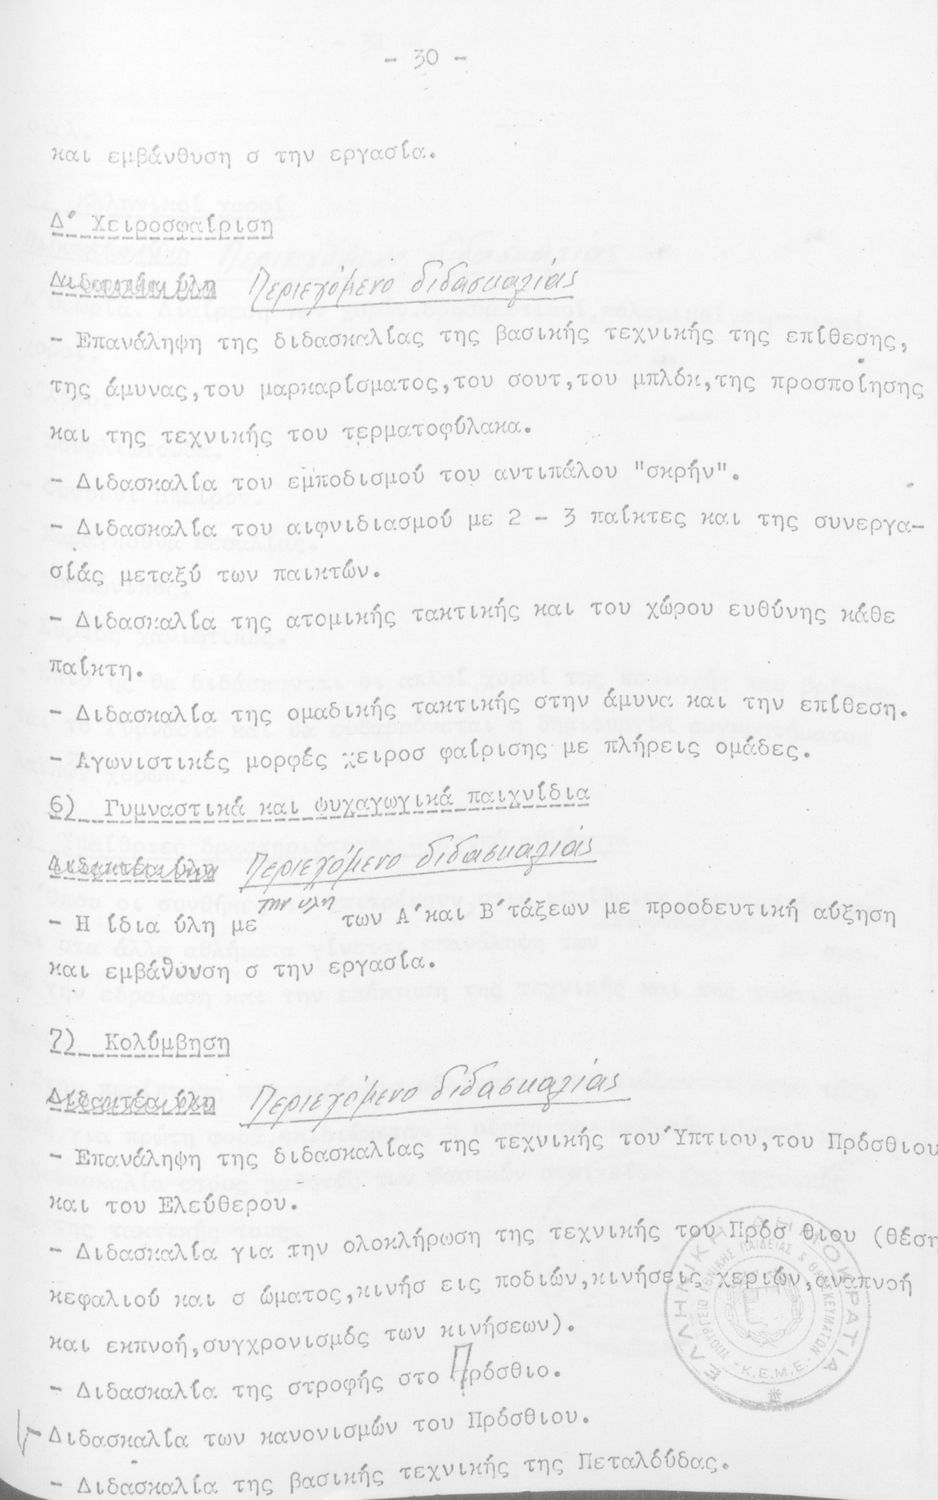 - 30 -
και εμβάνθυση σ την εργασία.
Δ' Χειροσφαίριση
Διδακτέα ύλη Περιεχόμενο διδασκαλίας
- Επανάληψη της διδασκαλίας της βασικής τεχνικής της επίθεσης,
της άμυνας,του μαρκαρίσματος,του σουτ,του μπλόκ,της προσποίησης
και της τεχνικής του τερματοφύλακα.
- Διδασκαλία του εμποδισμού του αντιπάλου "σκρήν".
- Διδασκαλία του αιφνιδιασμού με 2 - 3 παίκτες και της συνεργα-
σίάς μεταξύ των παικτών.
- Διδασκαλία της ατομικής τακτικής και του χώρου ευθύνης κάθε
παίκτη.
- Διδασκαλία της ομαδικής τακτικής στην άμυνα και την επίθεση.
- Αγωνιστικές μορφές χειροσ φαίρισης με πλήρεις ομάδες.
6) Γυμναστικά και ψυχαγωγικά παιχνίδια
Διδακτέα ύλη Περιεχόμενο διδασκαλίας
την ύλη
- Η ίδια ύλη με των Α'και Β'τάξεων με προοδευτική αύξηση
και εμβάθυνση σ την εργασία.
7) Κολύμβηση
Διδακτέα ύλη Περιεχόμενο διδασκαλίας
- Επανάληψη της διδασκαλίας της τεχνικής του Ύπτιου,του Πρόσθιου
και του Ελεύθερου.
- Διδασκαλία για την ολοκλήρωση της τεχνικής του Πρόσ θιου (θέση
κεφαλιού και σ ώματος,κινήσ εις ποδιών,κινήσεις χεριών,αναπνοή
και εκπνοή,συγχρονισμός των κινήσεων).
- Διδασκαλία της στροφής στο Πρόσθιο.
- Διδασκαλία των κανονισμών του Πρόσθιου.
- Διδασκαλία της βασικής τεχνικής της Πεταλούδας.
ΕΛΛΗΝΙΚΗ ΔΗΜΟΚΡΑΤΙΑ
ΥΠΟΥΡΓΕΙΟ ΕΘΝΙΚΗΣ ΠΑΙΔΕΙΑΣ & ΘΡΗΣΚΕΥΜΑΤΩΝ
Κ.Ε.Μ.Ε.